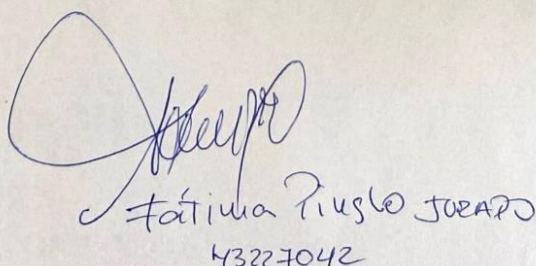 Fátima Pinglo JURADO
43227042